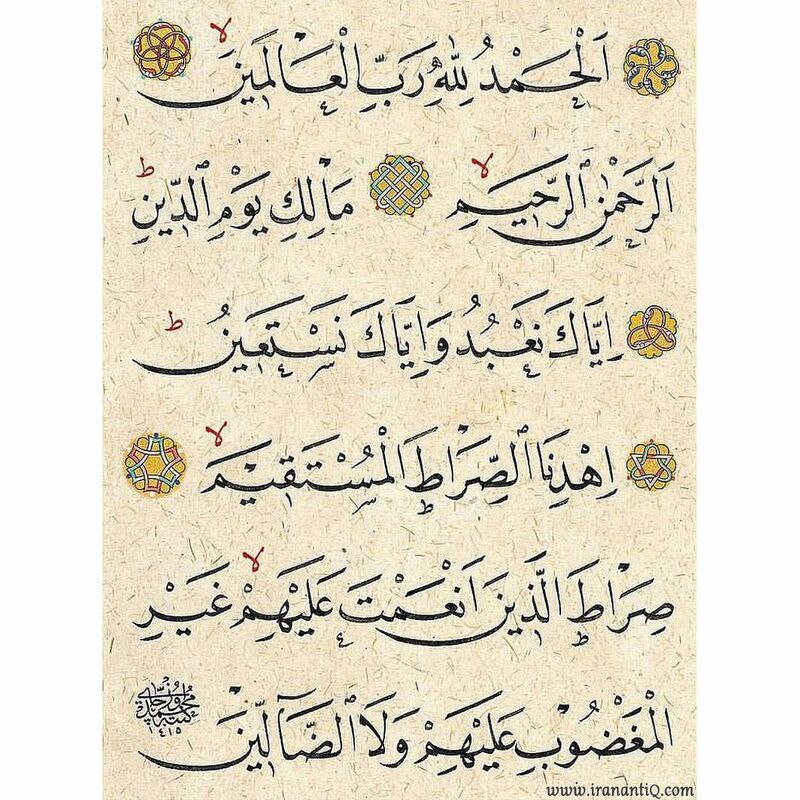 اَلْحَمْدُ لِلّٰهِ رَبِّ الْعَالَمِينَ ۙ
اَلرَّحْمٰنِ الرَّحِيمِ ۙ مَالِكِ يَوْمِ الدِّينِ ۜ ط
اِيَّاكَ نَعْبُدُ وَاِيَّاكَ نَسْتَعِينُ ط
اِهْدِنَا الصِّرَاطَ الْمُسْتَقِيمَ ۙ
صِرَاطَ الَّذِينَ اَنْعَمْتَ عَلَيْهِمْ ۙ غَيْرِ
الْمَغْضُوبِ عَلَيْهِمْ وَلَا الضَّٓالِّينَ
كتبه محمد اوزجاى
١٤١٥
www.iranantiQ.com